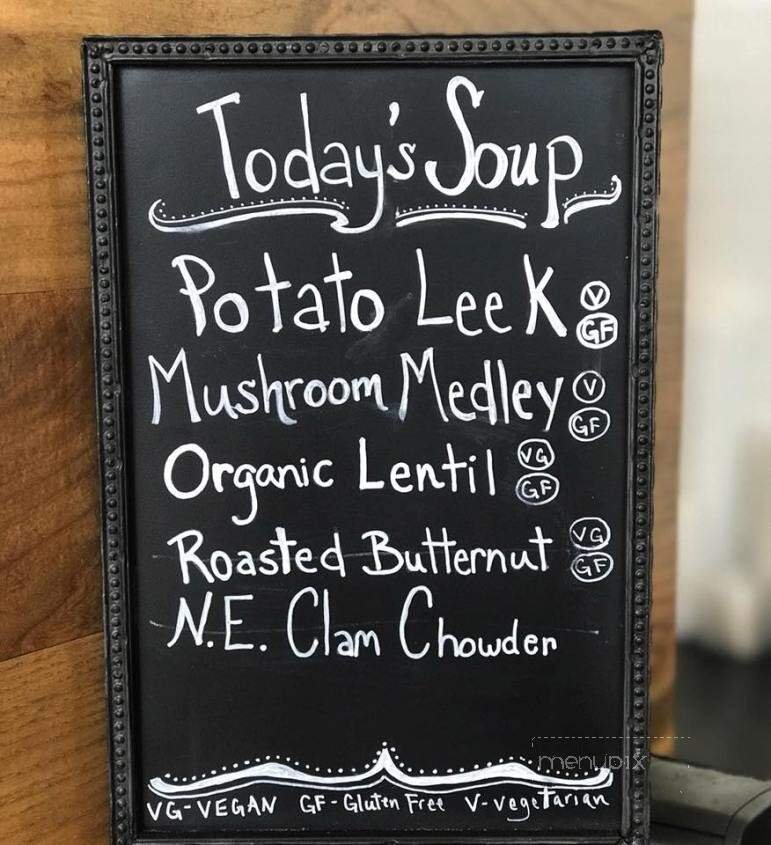 Today's Soup
Potato Leek V GF
Mushroom Medley V GF
Organic Lentil VG GF
Roasted Butternut VG GF
N.E. Clam Chowder
menupix
VG-VEGAN GF-Gluten Free V-vegetarian